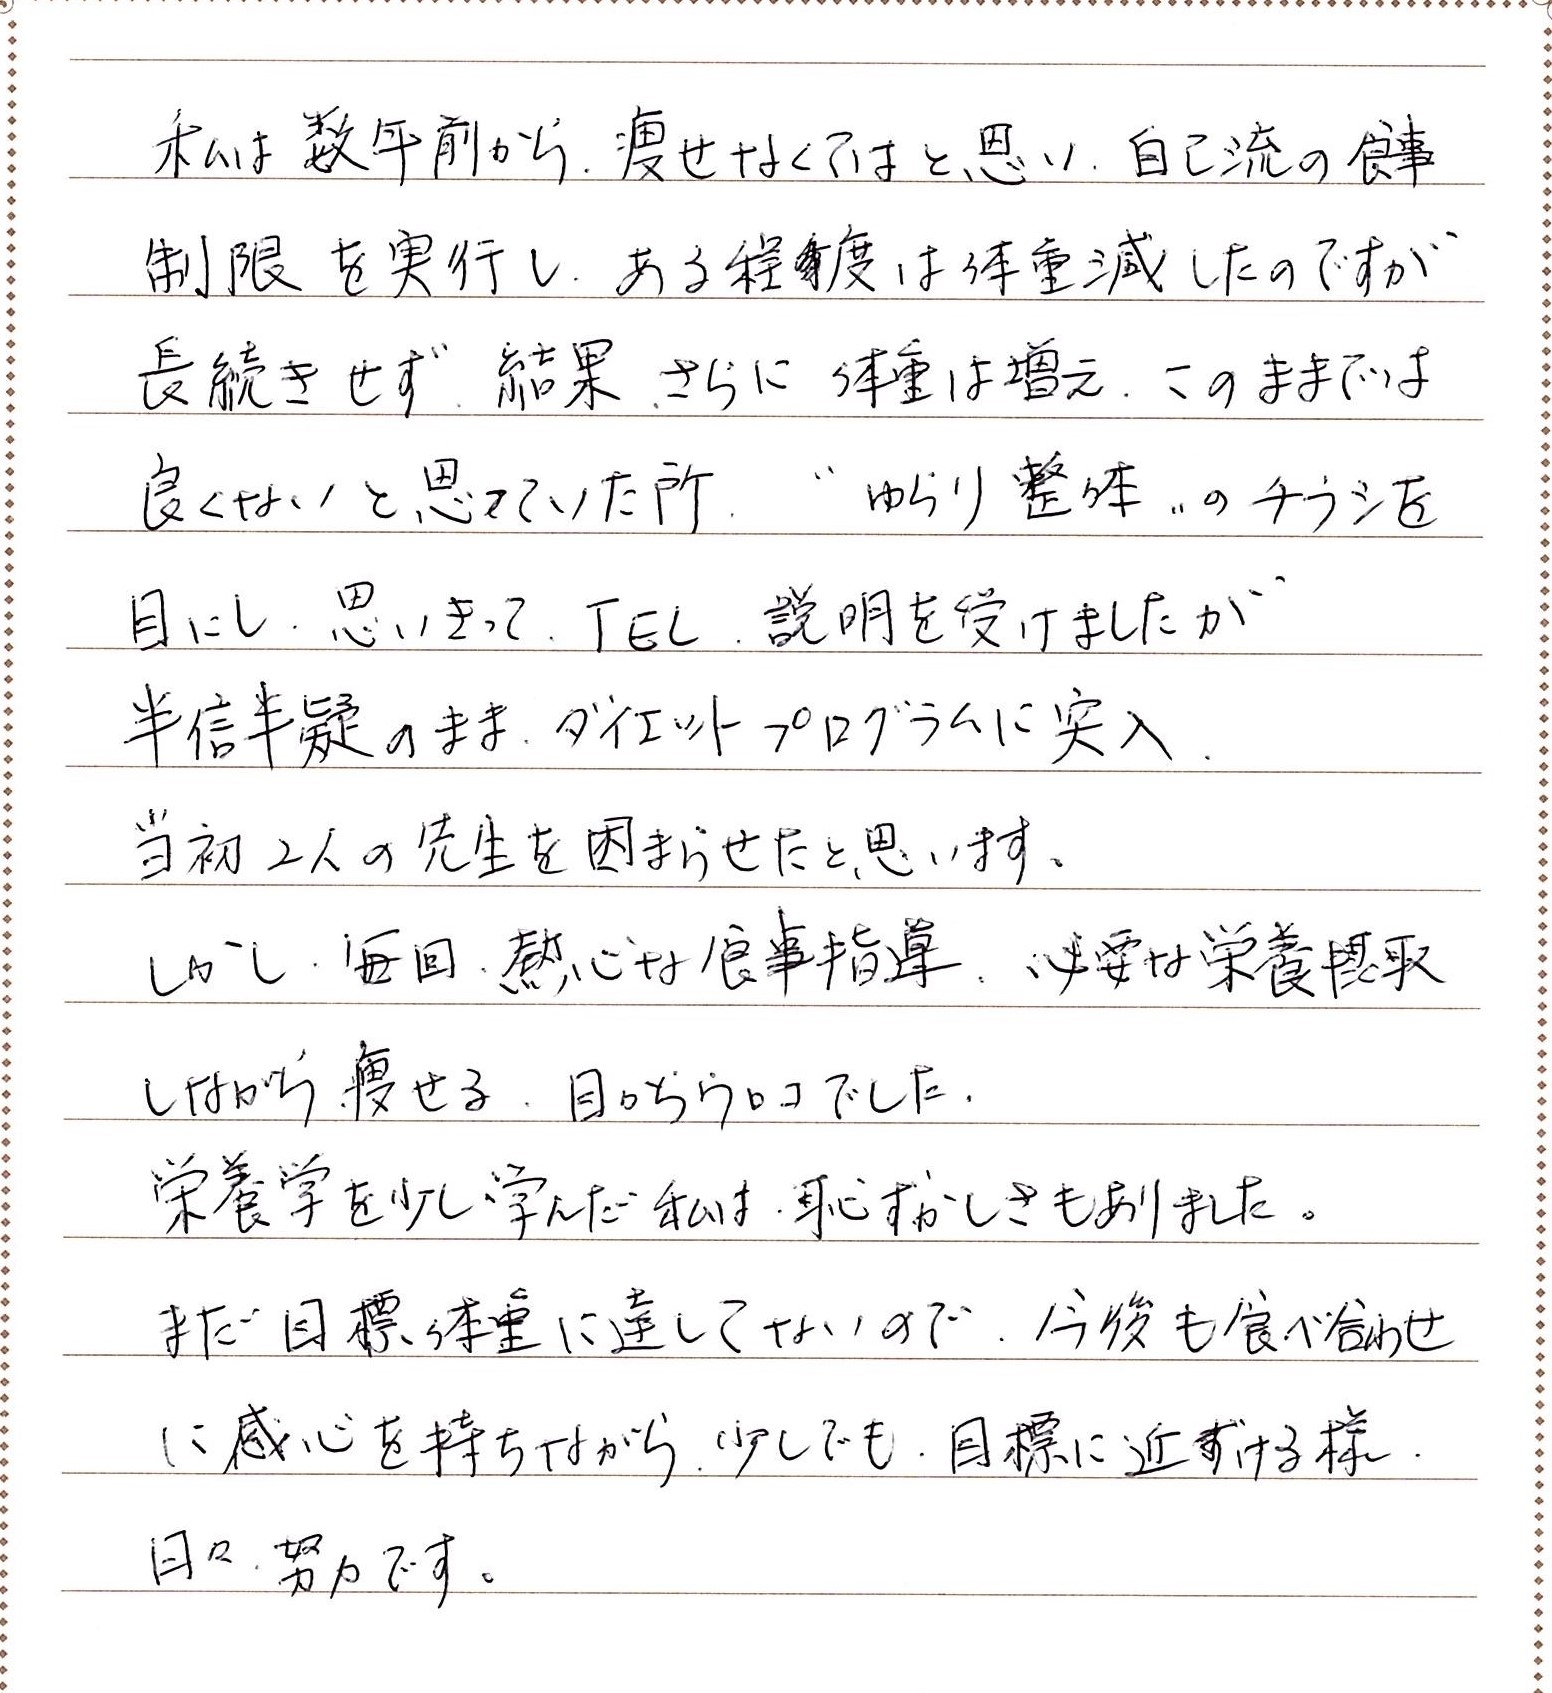 私は数年前から、痩せなくてはと思い、自己流の食事
制限を実行し、ある程度は体重減したのですが
長続きせず、結果、さらに体重は増え、このままでは
良くないと思っていた所、〝ゆらり整体〟のチラシを
目にし、思いきって、TEL、説明を受けましたが
半信半疑のまま、ダイエットプログラムに突入、
当初2人の先生を困まらせたと思います。
しかし、毎回、熱心な食事指導、必要な栄養摂取
しながら痩せる、目からウロコでした、
栄養学を少し学んだ私は、恥ずかしさもありました。
まだ目標体重に達してないので、今後も食べ合わせ
に感心を持ちながら、少しでも、目標に近ずける様、
日々、努力です。